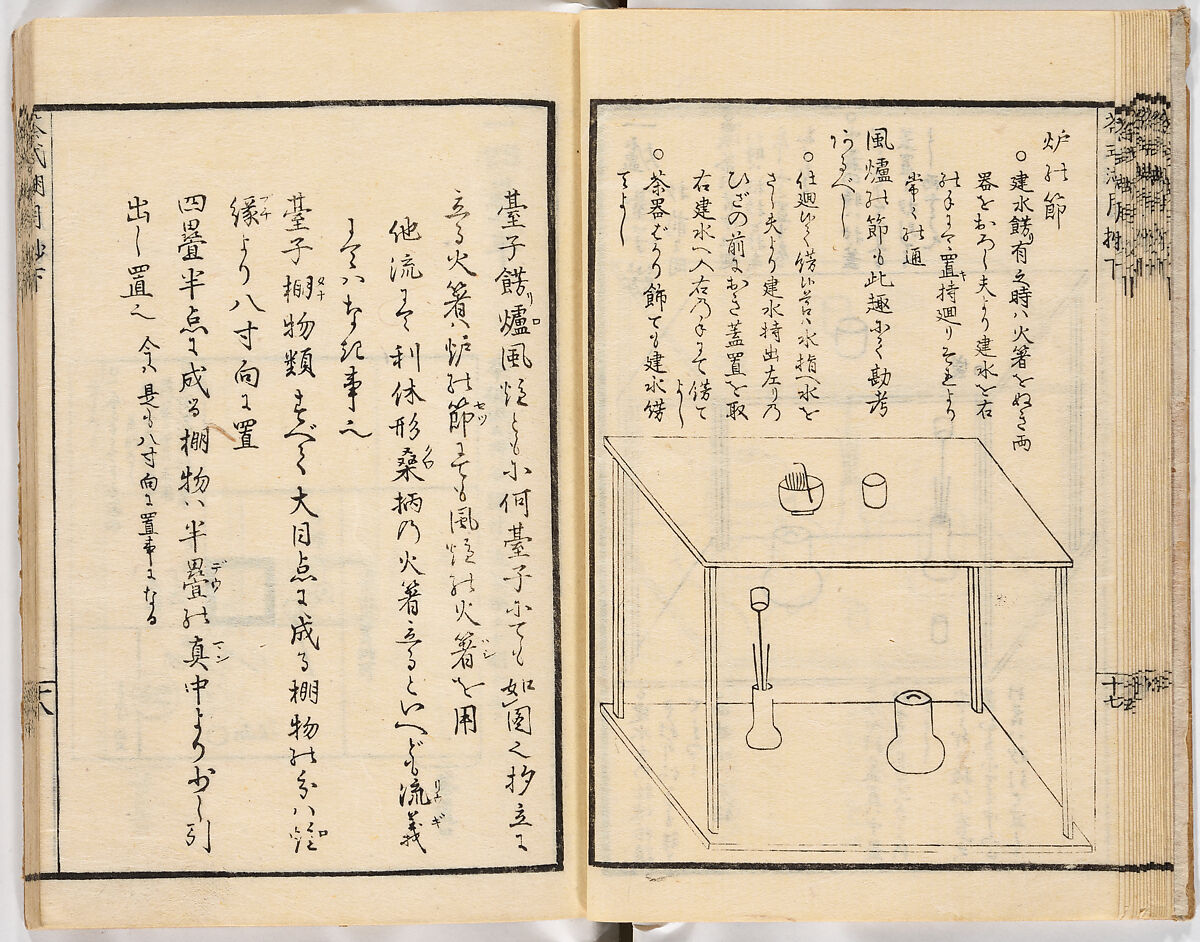 炉の節
○建水餝有之時ハ火箸をぬき両
器をおろし夫より建水を右
の手にて置持廻り
常々の通
風爐の節も此趣にて勘考
あるべし
○仕廻にて餝候節ハ水指へ水を
さし夫より建水持出左りの
ひざの前におき蓋置を取
右建水へ入右の手にて餝て
よし
○茶器ばかり飾ても建水餝
てよし
十七
臺子餝リ爐風炉ともに何臺子にても如圖之杓立に
立る火箸ハ炉の節にても風炉の火箸を用
他流にて利休形桑柄の火箸立るといへども流義
にてハなき事也
臺子棚物類すべて大目点に成る棚物の分ハ炉
縁より八寸向に置
四疊半点に成る棚物ハ半疊の真中より少し引
出し置也 今ハ是も八寸向に置事になる
十八